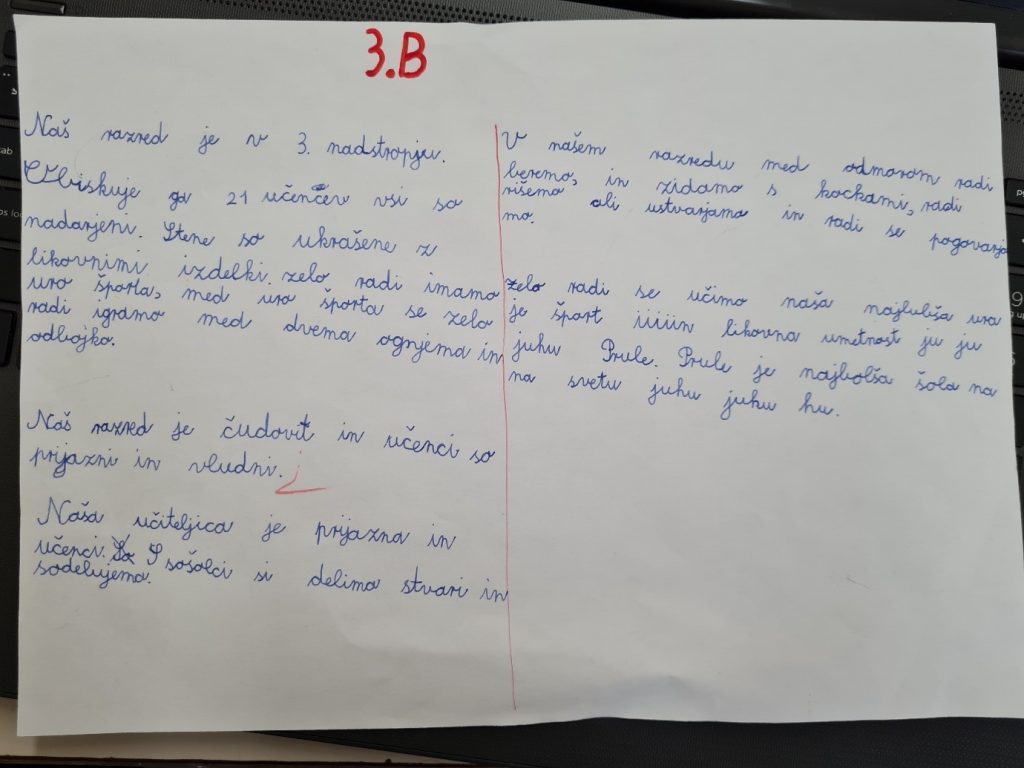 3.B
Naš razred je v 3. nadstropju.
Obiskuje ga 21 učencev vsi so
nadarjeni. Stene so ukrašene z
likovnimi izdelki. zelo radi imamo
uro športa, med uro športa se zelo
radi igramo med dvema ognjema in
odbojko.
Naš razred je čudovit in učenci so
prijazni in vludni.
Naša učiteljica je prijazna in
učenci. S sošolci si delimo stvari in
sodelujemo.
V našem razredu med odmorom radi
beremo, in zidamo s kockami, radi
rišemo ali ustvarjamo in radi se pogovarja
mo.
zelo radi se učimo naša najlubša ura
je šport iiiiin likovna umetnost ju ju
juhu Prule. Prule je najbolša šola na
na svetu juhu juhu hu.